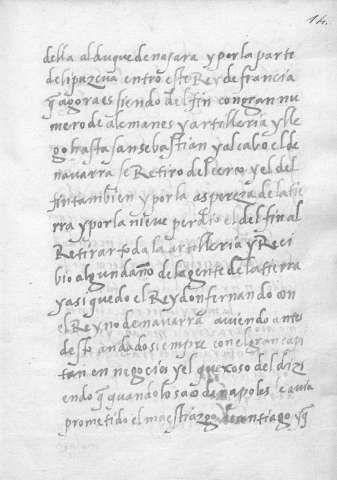 14.
della al duque de najara y por la parte
de lipuzcua entro este Rey de francia
q agora es siendo delfin con gran nu
mero de alemanes y artilleria y lle
go hasta san sebastian y al cabo el de
navarra se Retiro del cerco y el del
fin tambien y por la aspereza de la tie
rra y por la nieve perdio el delfin al
Retirar toda la artilleria y Reci
bio algun daño de la gente de la tierra
y asi quedo el Rey don fernando con
el Reyno de navarra aviendo antes
desto andado siempre con el gran capi
tan en negocios y el quexoso del dizi
endo q quando lo saco de napoles le avia
prometido el maestrazgo de santiago y q